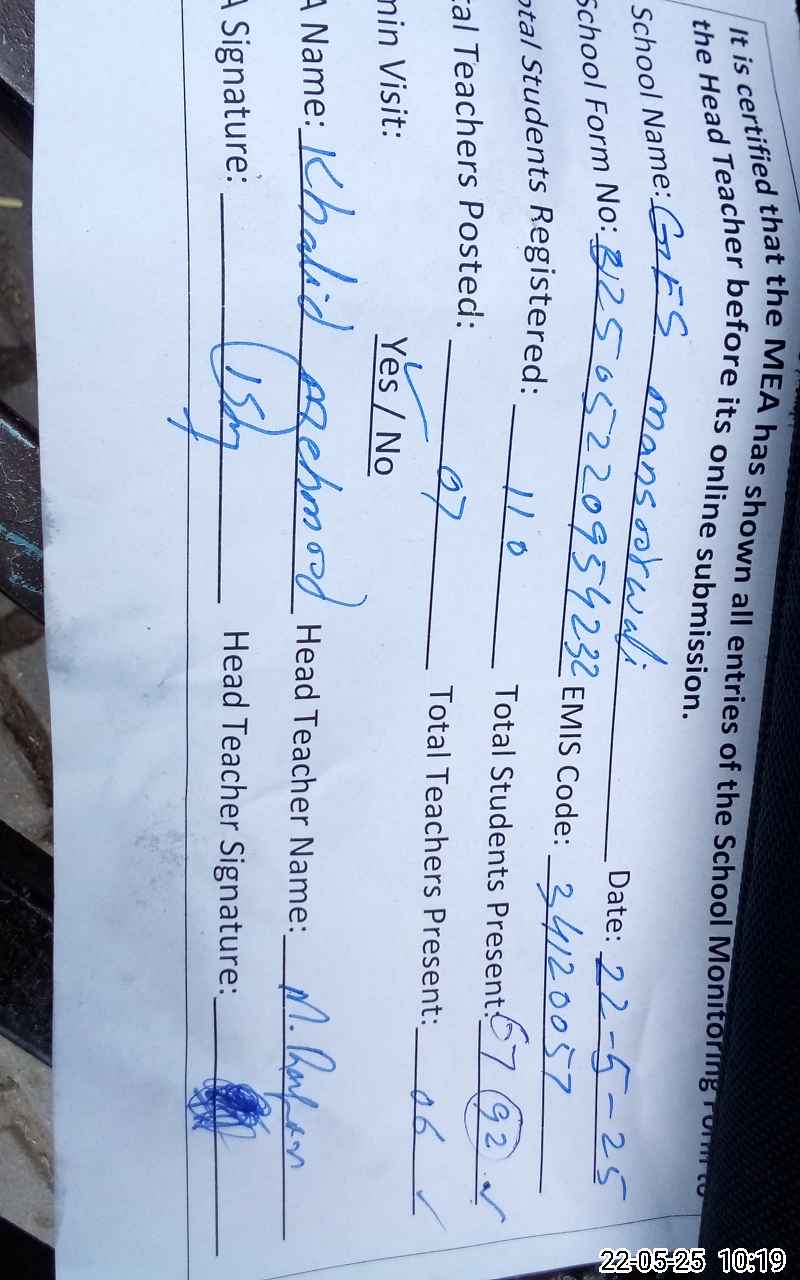 It is certified that the MEA has shown all entries of the School Monitoring Form to
the Head Teacher before its online submission.
School Name: GES mansoorwali Date: 22-5-25
School Form No: B12505220954232 EMIS Code: 34120057
otal Students Registered: 110 Total Students Present: 67 92 ✓
tal Teachers Posted: 07 Total Teachers Present: 06 ✓
min Visit: Yes / No
A Name: Khalid Mehmood Head Teacher Name: M.
A Signature: Head Teacher Signature:
22-05-25 10:19